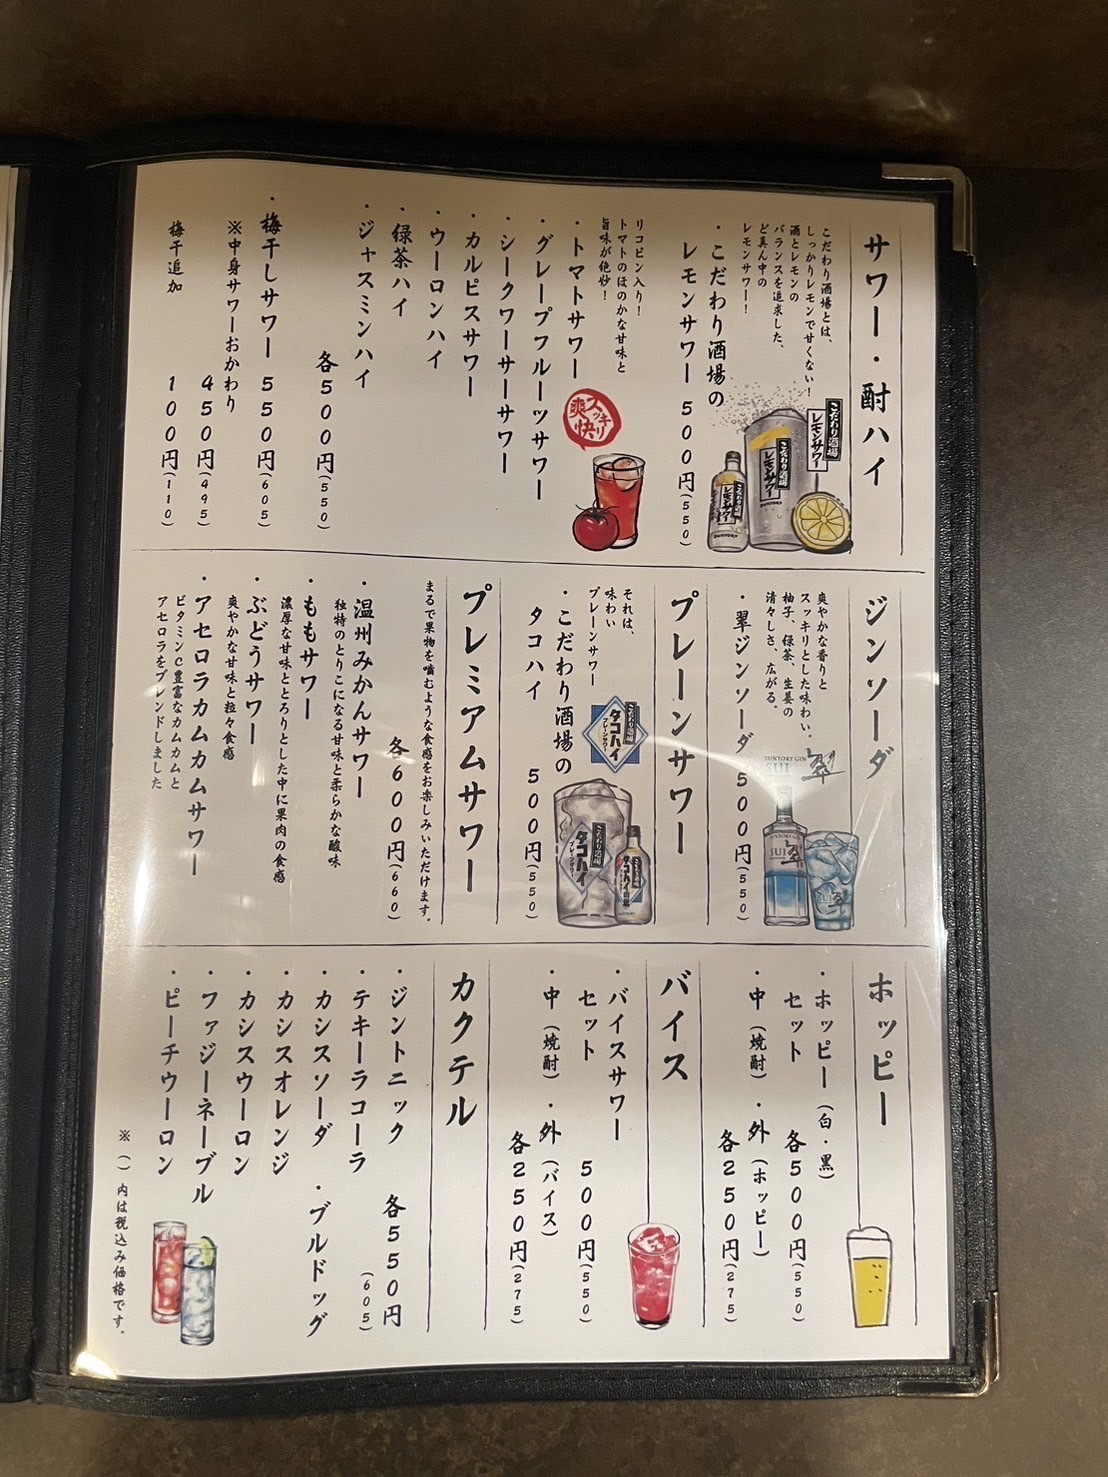 サワー・酎ハイ
こだわり酒場とは、
しっかりレモンで甘くない！
酒とレモンの
バランスを追求した、
ど真ん中の
レモンサワー！
・こだわり酒場の
レモンサワー 500円(550)
こだわり酒場
レモンサワー
こだわり酒場
レモンサワー
SUNTORY
こだわり酒場
レモンサワー
SUNTORY
リコピン入り！
トマトのほのかな甘味と
旨味が絶妙！
・トマトサワー
スッキリ
爽快
・グレープフルーツサワー
・シークワーサーサワー
・カルピスサワー
・ウーロンハイ
・緑茶ハイ
・ジャスミンハイ
各500円(550)
・梅干しサワー 550円(605)
※中身サワーおかわり
450円(495)
梅干追加 100円(110)
ジンソーダ
爽やかな香りと
スッキリとした味わい。
柚子、緑茶、生姜の
清々しさ、広がる。
・翠ジンソーダ 500円(550)
SUNTORY GIN
SUI
翠
プレーンサワー
それは、
味わい
プレーンサワー
・こだわり酒場の
タコハイ 500円(550)
こだわり酒場
タコハイ
プレーンサワー
こだわり酒場
タコハイ
プレーンサワー
プレミアムサワー
まるで果物を噛むような食感をお楽しみいただけます。
各600円(660)
・温州みかんサワー
独特のとりこになる甘味と柔らかな酸味
・ももサワー
濃厚な甘味ととろりとした中に果肉の食感
・ぶどうサワー
爽やかな甘味と粒々食感
・アセロラカムカムサワー
ビタミンC豊富なカムカムと
アセロラをブレンドしました
ホッピー
・ホッピー(白・黒)
セット 各500円(550)
・中(焼酎)・外(ホッピー)
各250円(275)
バイス
・バイスサワー
セット 500円(550)
・中(焼酎)・外(バイス)
各250円(275)
カクテル
・ジントニック 各550円
(605)
・テキーラコーラ
・カシスソーダ ・ブルドッグ
・カシスオレンジ
・カシスウーロン
・ファジーネーブル
・ピーチウーロン
※()内は税込み価格です。